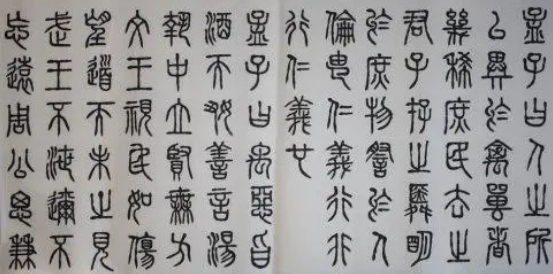 孟子曰人之所
以異於禽獸者
幾稀庶民去之
君子存之舜明
於庶物詧於人
倫由仁義行非
行仁義也
孟子曰禹惡旨
酒而好善言湯
執中立賢無方
文王視民如傷
望道而未之見
武王不泄邇不
忘遠周公思兼